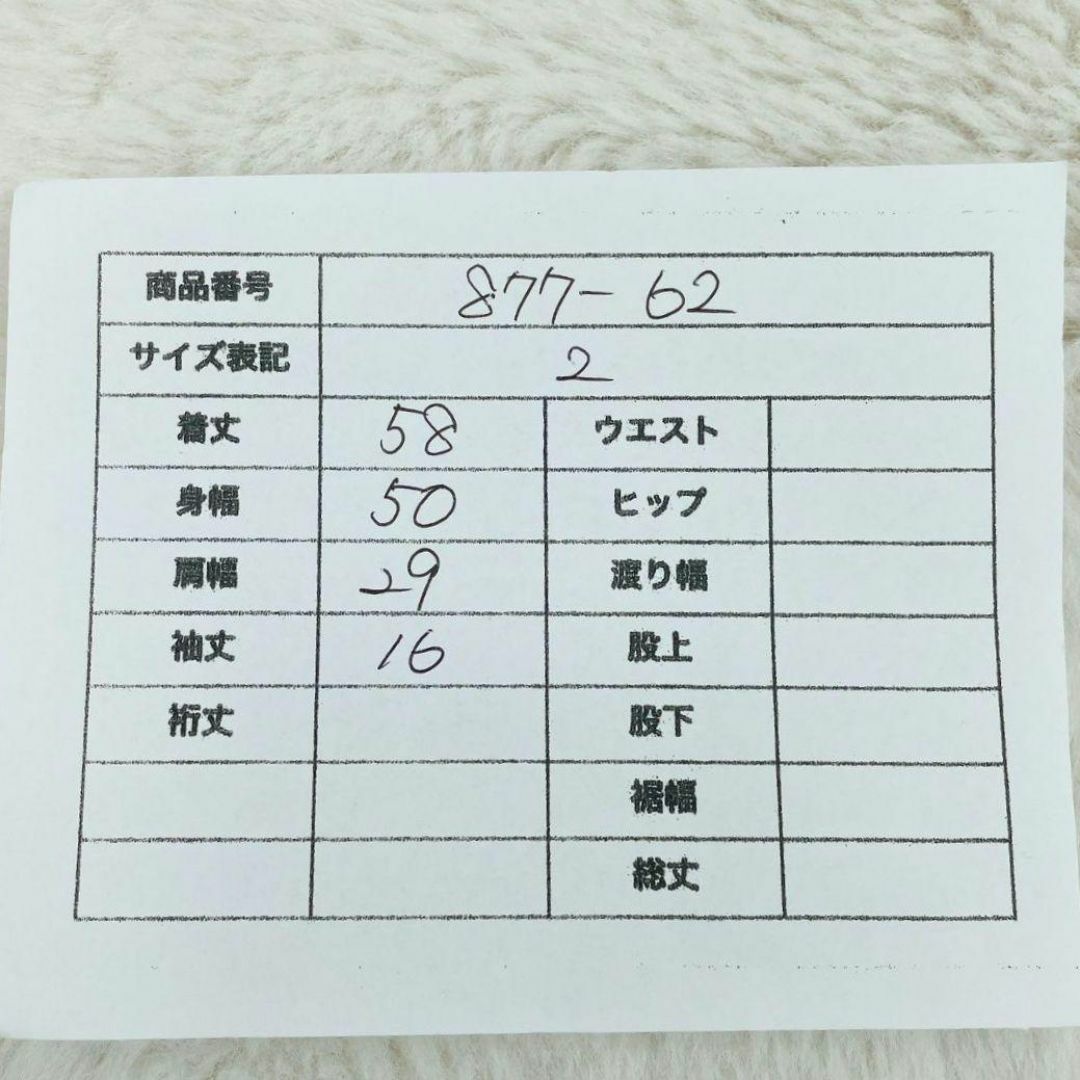 商品番号 877-62
サイズ表記 2
着丈 58 ウエスト
身幅 50 ヒップ
肩幅 29 渡り幅
袖丈 16 股上
裄丈 股下
裾幅
総丈